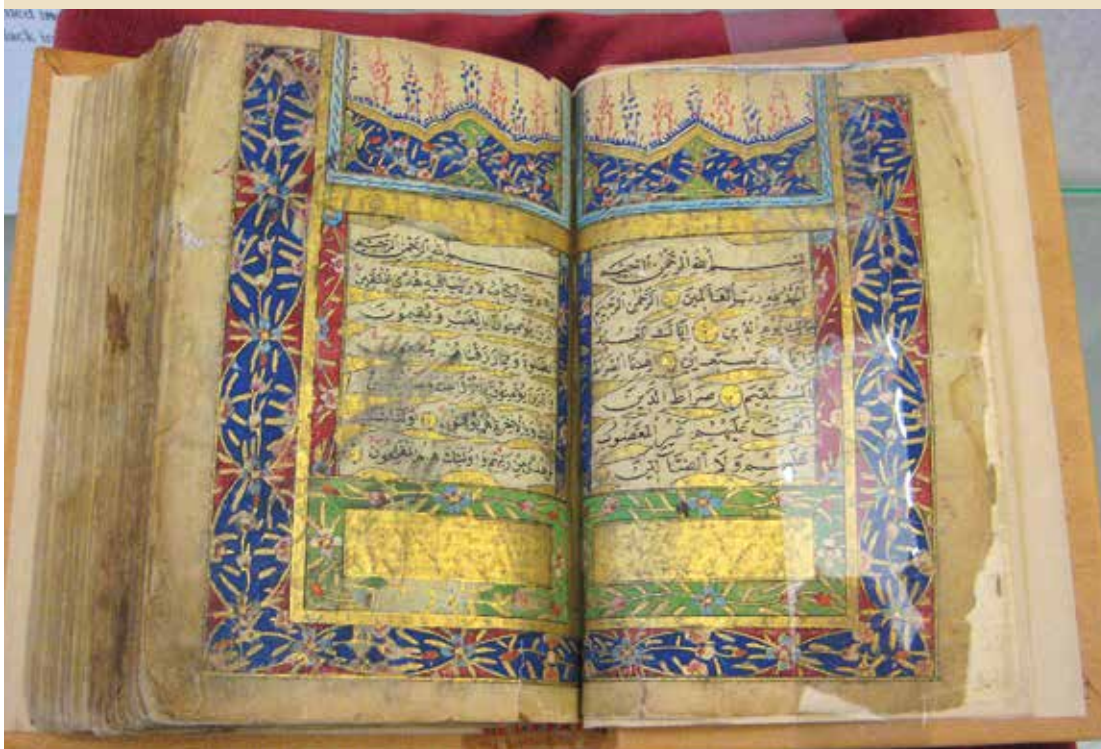 بسم الله الرحمن الرحيم
الحمد لله رب العالمين الرحمن الرحيم
مالك يوم الدين اياك نعبد
واياك نستعين اهدنا الصراط
المستقيم صراط الذين
انعمت عليهم غير المغضوب
عليهم ولا الضالين
بسم الله الرحمن الرحيم
ذلك الكتاب لا ريب فيه هدى للمتقين
الذين يؤمنون بالغيب ويقيمون
الصلوة ومما رزقناهم ينفقون
والذين يؤمنون بما انزل اليك وما
وبالاخرة هم يوقنون اولئك
على هدى من ربهم واولئك هم المفلحون